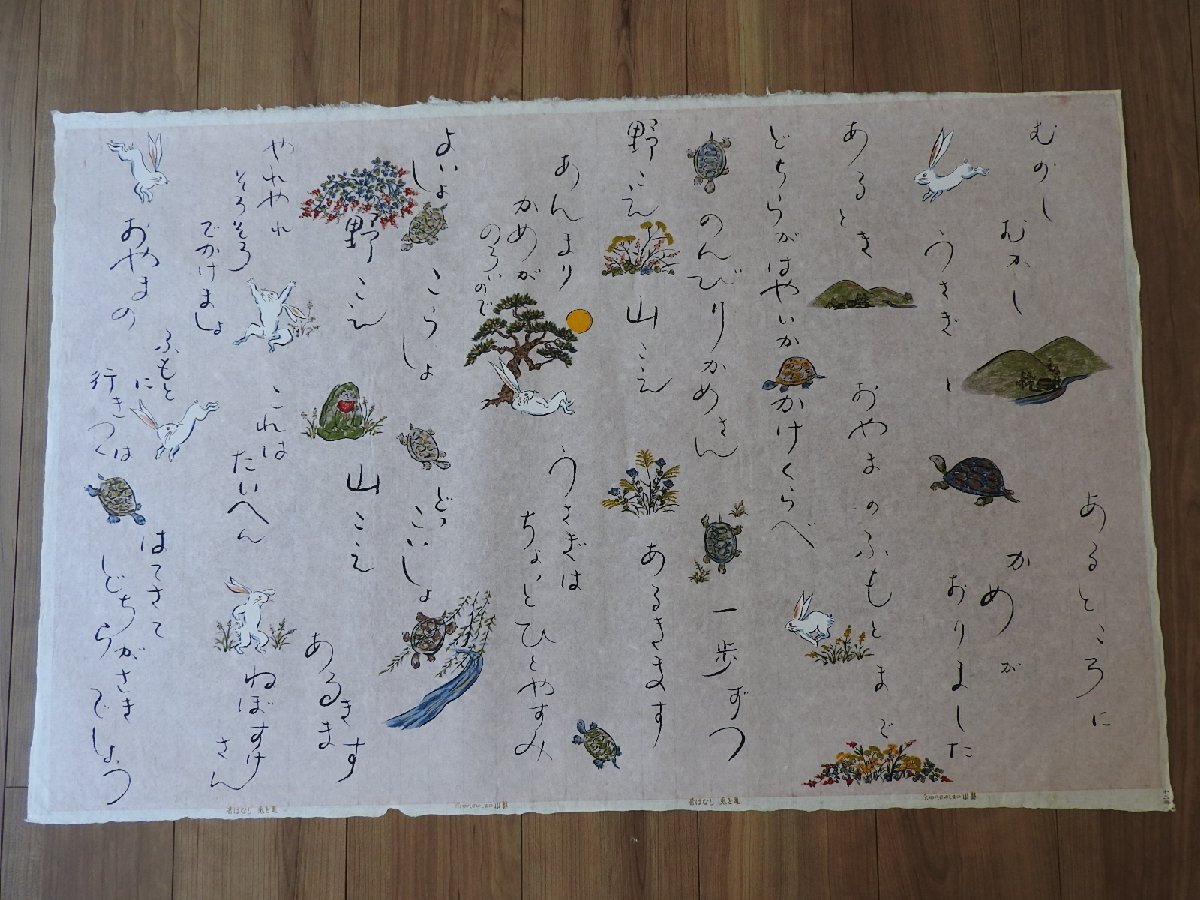 むかし
むかし
あるところに
うさぎと
かめが
おりました
あるとき
おやまのふもとまで
どちらがはやいか
かけくらべ
のんびりかめさん
一歩ずつ
野こえ
山こえ
あるきます
あんまり
かめが
のろいので
うさぎは
ちょいとひとやすみ
よいしょ
こらしょ
どっこいしょ
野こえ
山こえ
あるきます
やれやれ
そろそろ
でかけましょ
これは
たいへん
ねぼすけ
さん
おやまの
ふもとに
行きつくは
はてさて
どちらがさき
でしょう
昔ばなし 兎と亀
昔ばなし 兎と亀